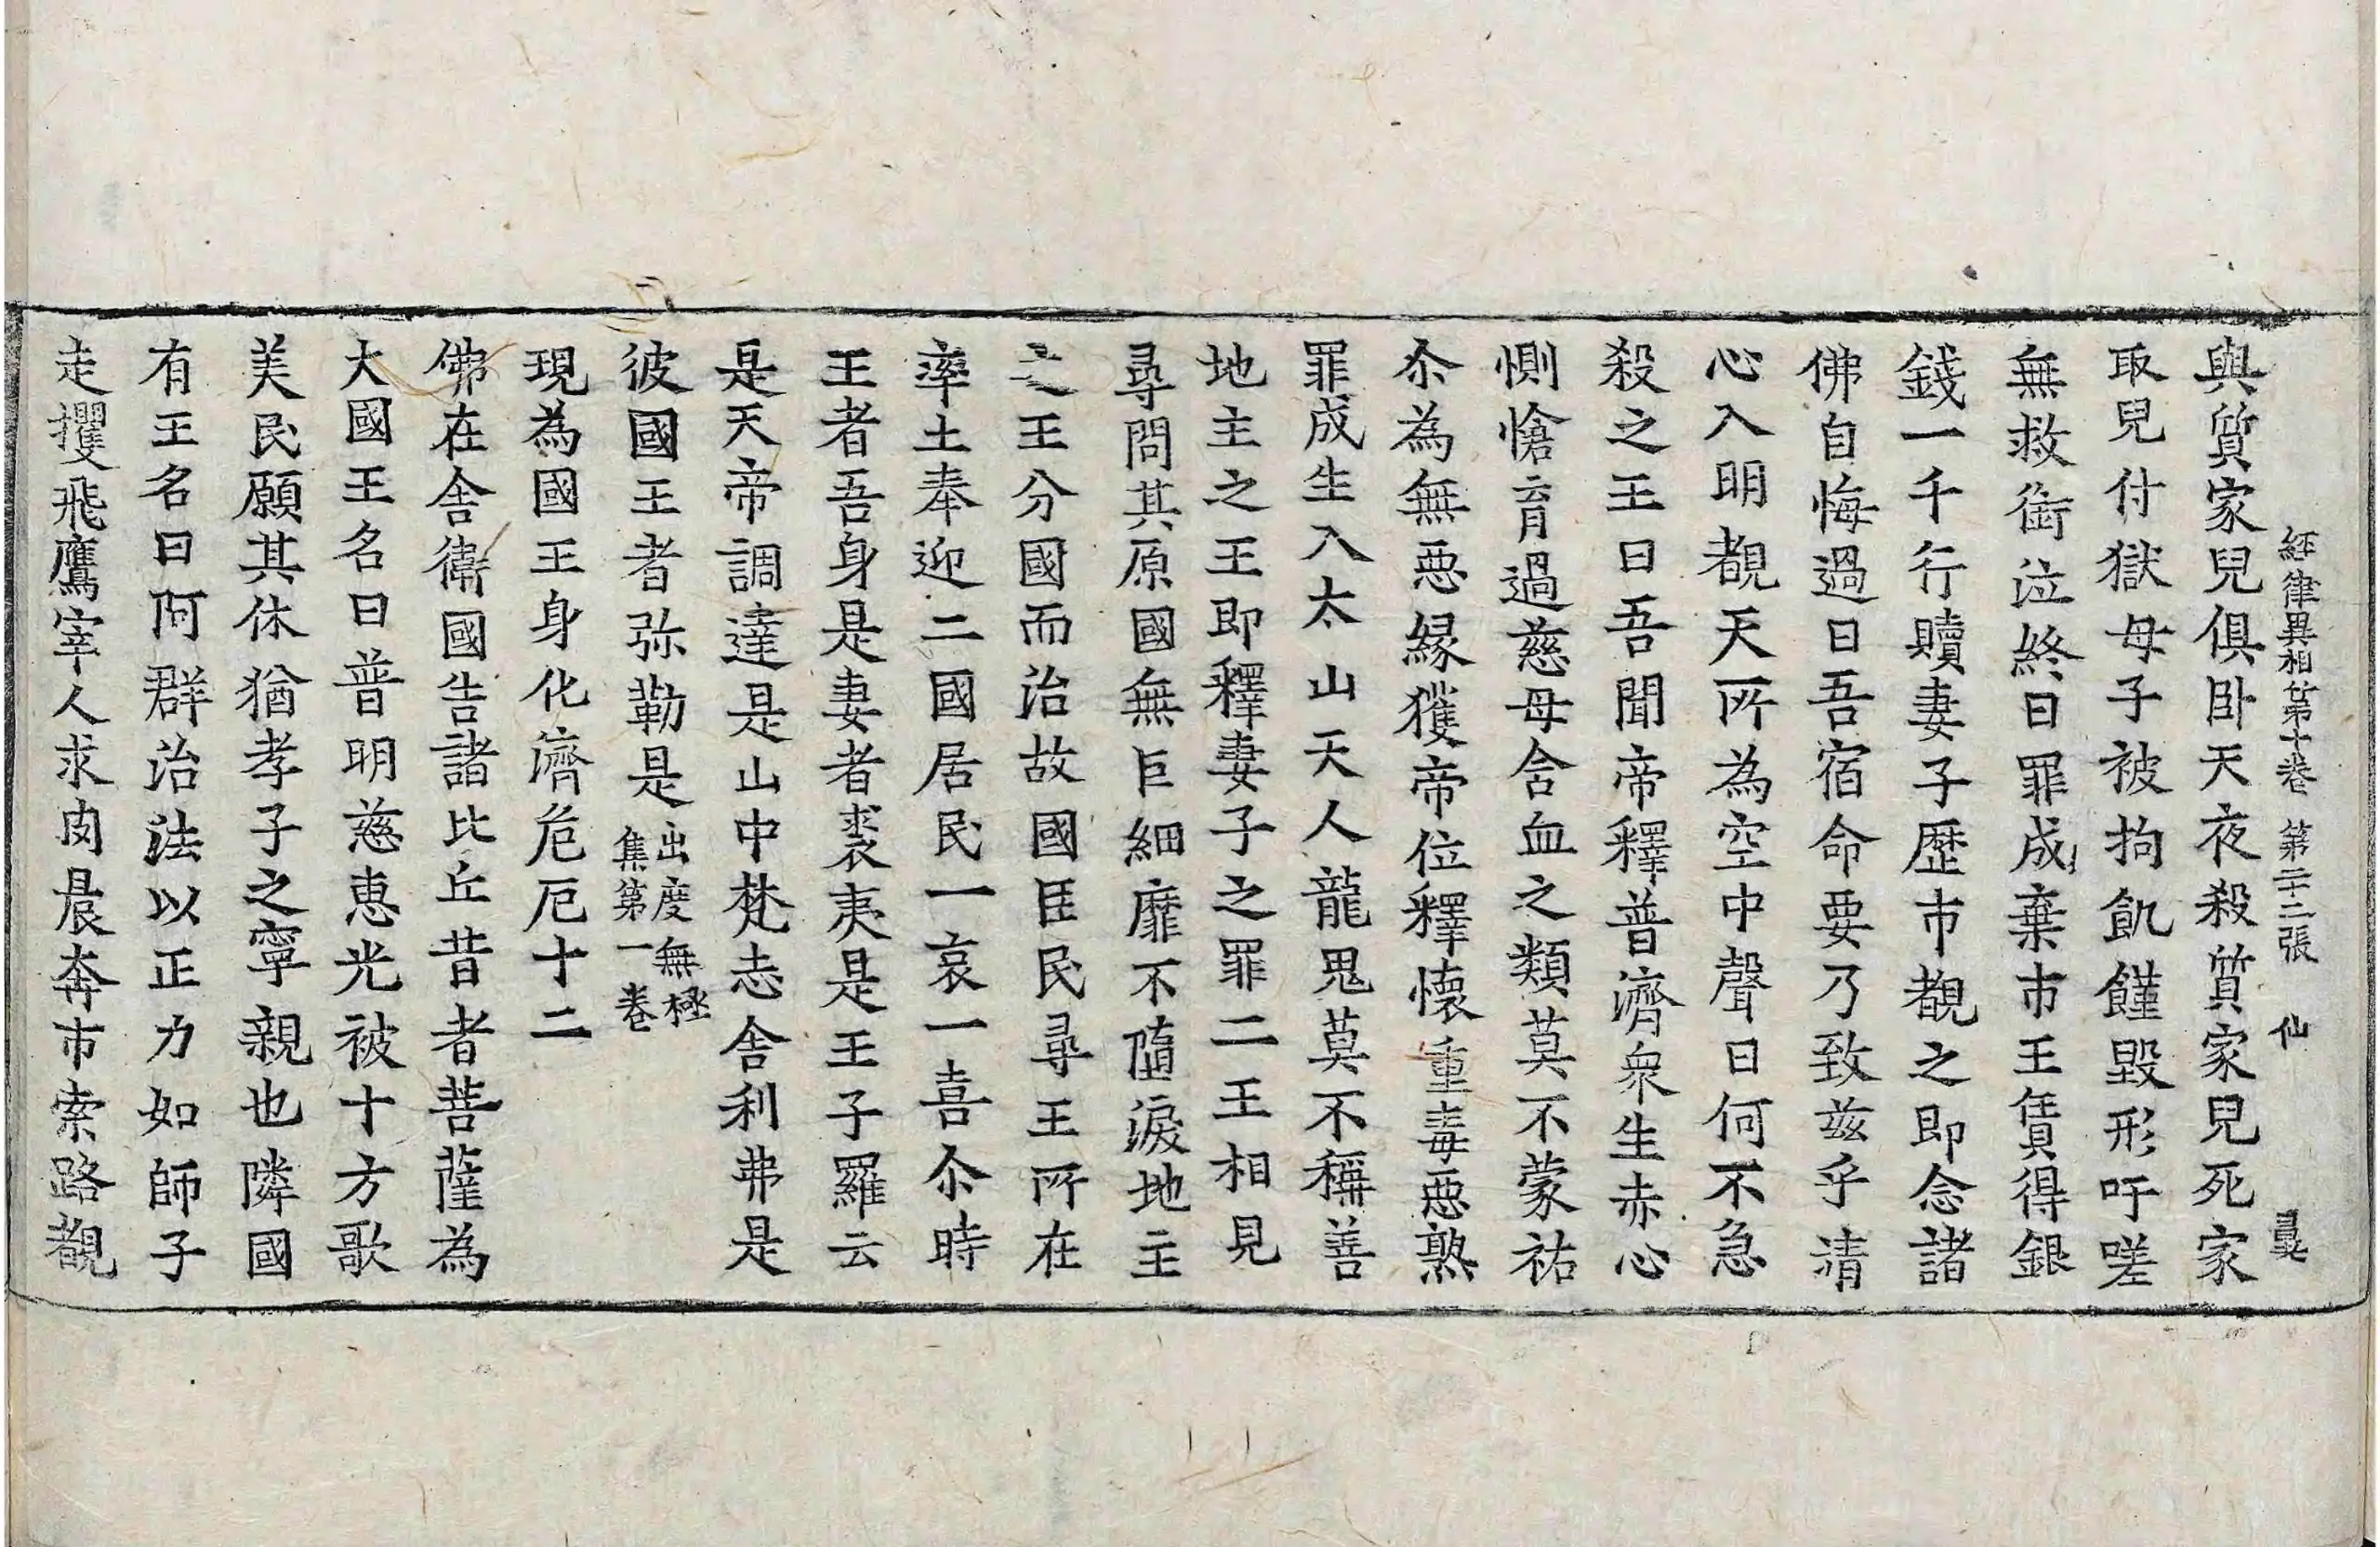 經律異相第十卷 第二十二張 仙
與質家兒俱卧天夜殺質家兒死家
取兒付獄母子被拘飢饉毀形吁嗟
無救銜泣終日罪成棄市王賃得銀
錢一千行贖妻子歷市覩之即念諸
佛自悔過曰吾宿命要乃致兹乎清
心入明覩天所為空中聲曰何不急
殺之王曰吾聞帝釋普濟衆生赤心
惻愴育過慈母含血之類莫不蒙祐
尒為無惡緣獲帝位釋懷重毒惡熟
罪成生入太山天人龍鬼莫不稱善
地主之王即釋妻子之罪二王相見
尋問其原國無巨細靡不隨淚地主
之王分國而治故國臣民尋王所在
率土奉迎二國居民一哀一喜尒時
王者吾身是妻者裘夷是王子羅云
是天帝調達是山中梵志舍利弗是
彼國王者弥勒是出度無極集第一卷
現為國王身化濟危厄十二
佛在舍衛國告諸比丘昔者菩薩為
大國王名曰普明慈惠光被十方歌
美民願其休猶孝子之寧親也隣國
有王名曰阿群治法以正力如師子
走攫飛鷹宰人求肉晨奔市索路覩